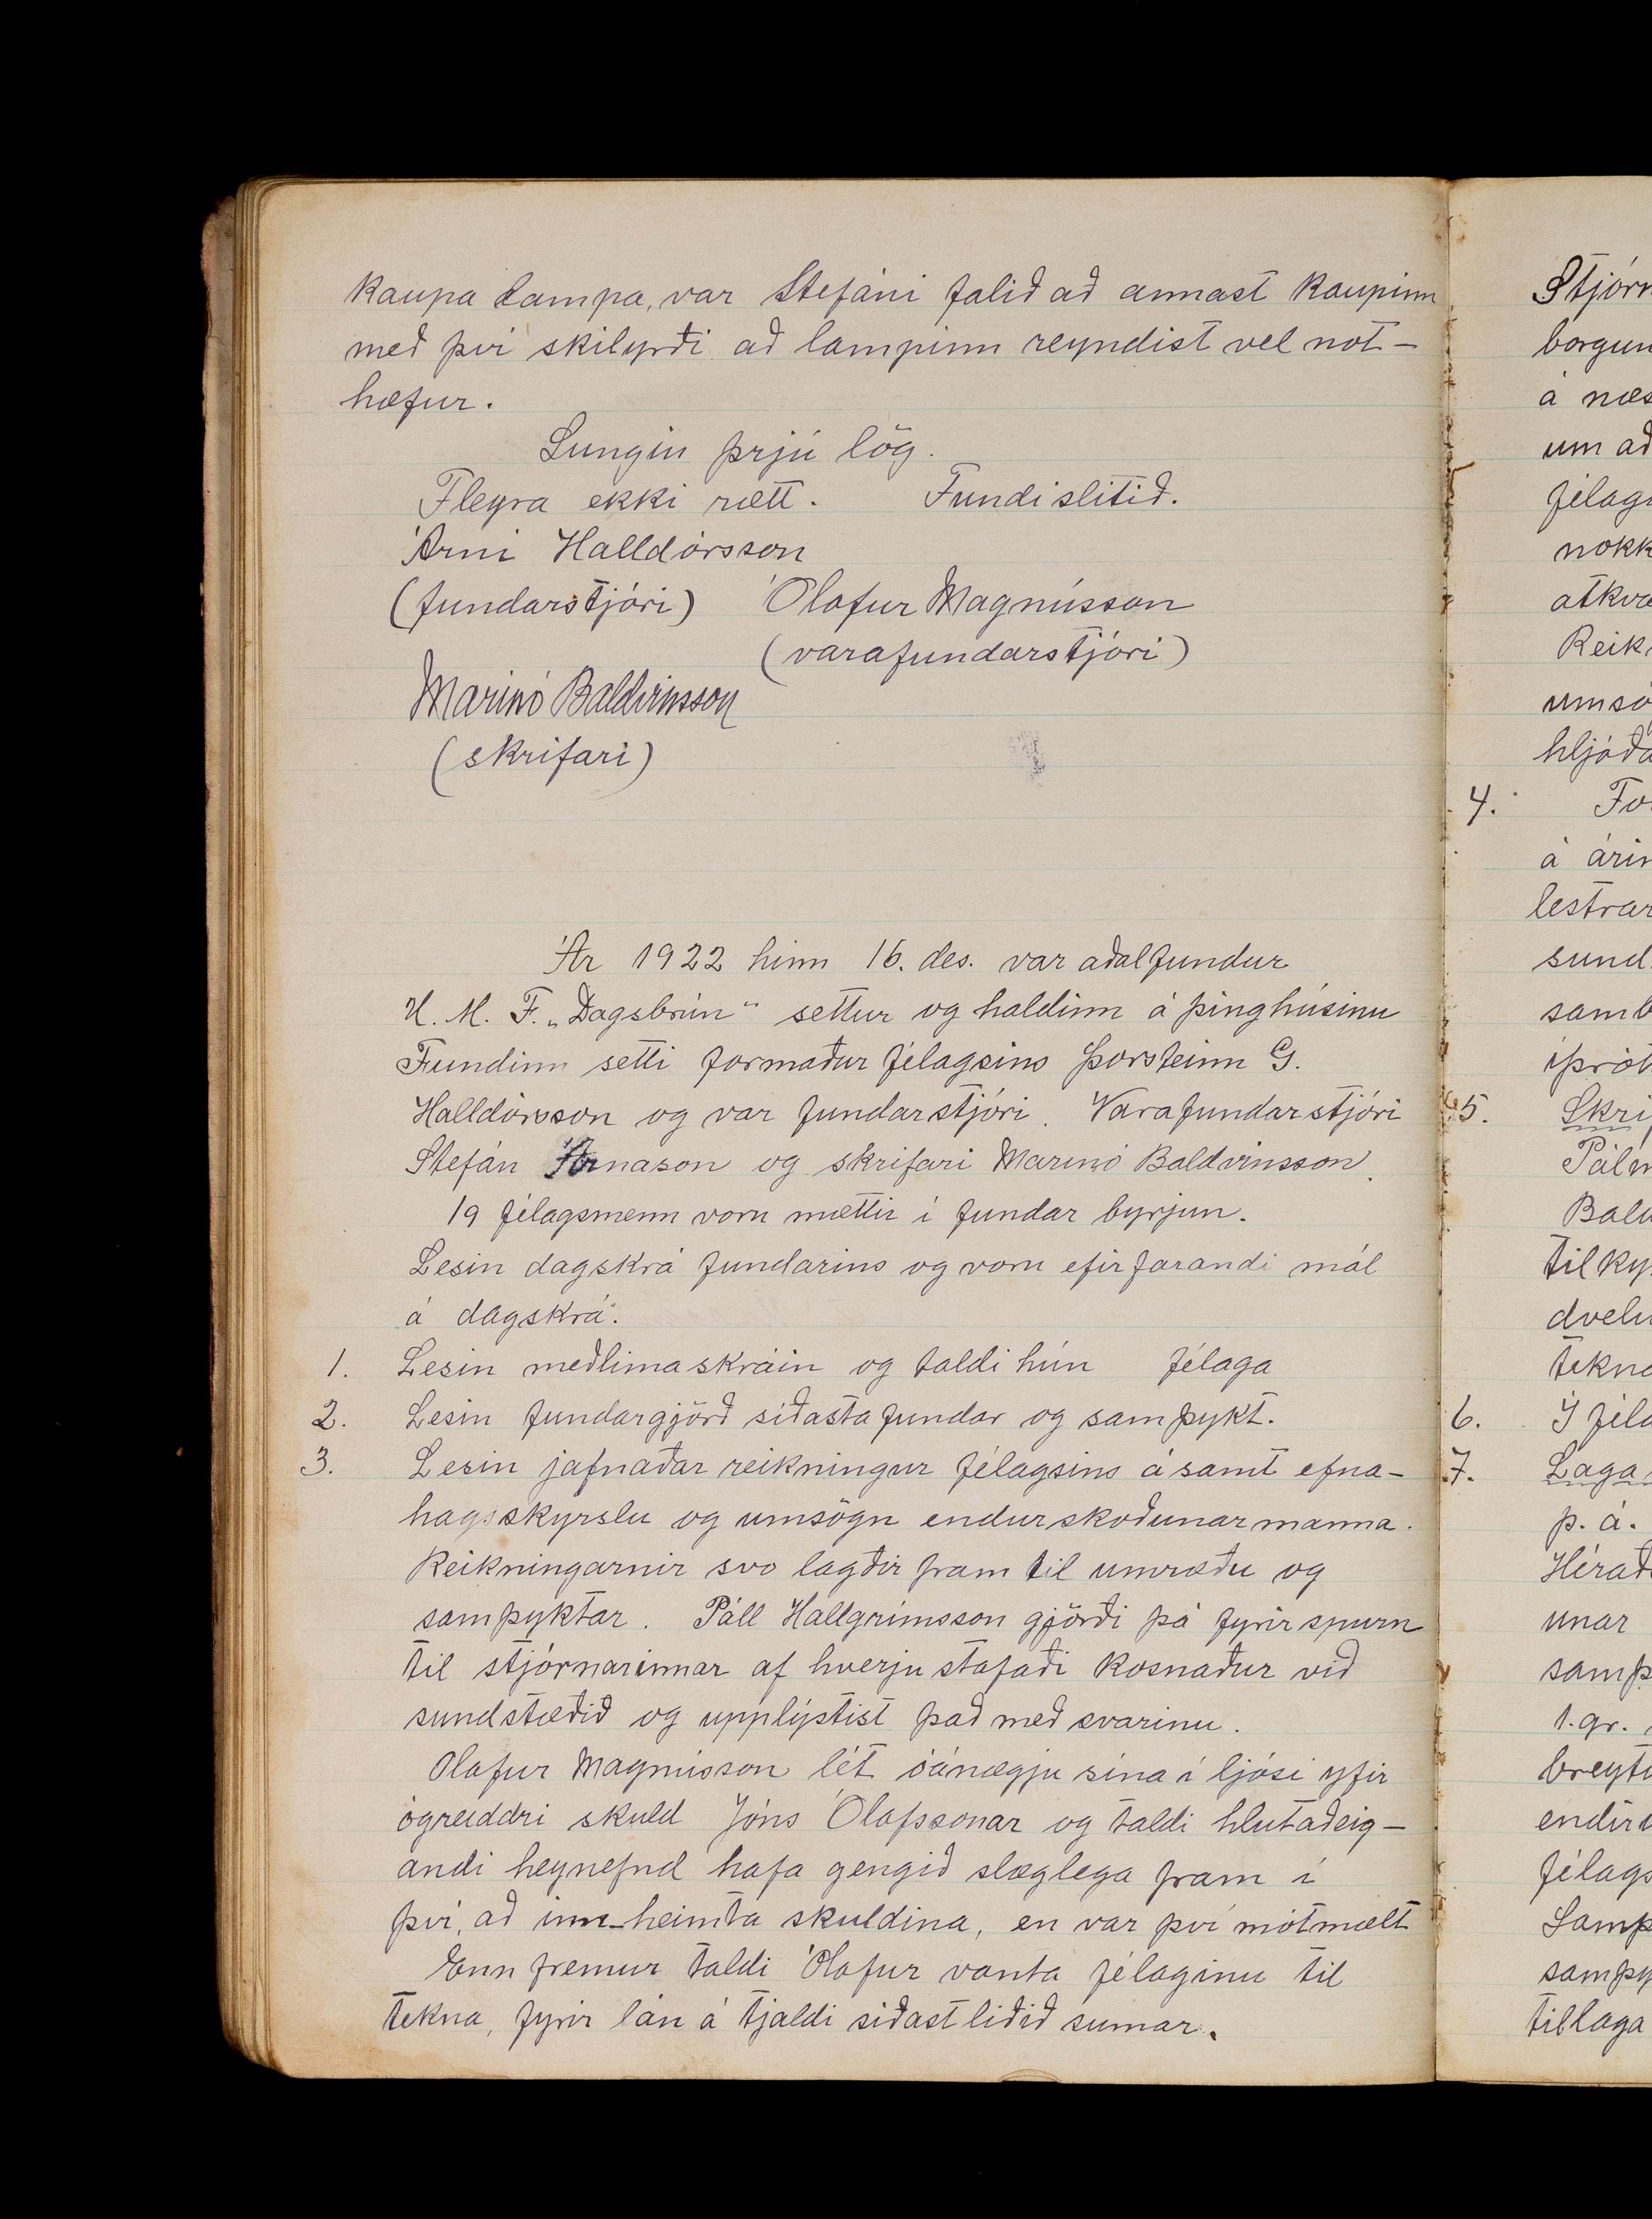 kaupa lampa, var Stefáni falið að annast kaupinn
með því skilyrði að lampinn reyndist vel not-
hæfur.
Sungin þrjú lög.
Fleyra ekki rætt. Fundi slitið.
Árni Halldórsson
(fundarstjóri) Ólafur Magnússon
(varafundarstjóri)
Marinó Baldvinsson
(skrifari)
Ár 1922 hinn 16. des. var aðalfundur
U. M. F. „Dagsbrún" settur og haldinn á þinghúsinu
Fundinn setti formaður félagsins Þorsteinn G.
Halldórsson og var fundarstjóri. Varafundarstjóri
Stefán Árnason og skrifari Marinó Baldvinsson.
19 félagsmenn voru mættir í fundar byrjun.
Lesin dagskrá fundarins og voru efirfarandi mál
á dagskrá:
1. Lesin meðlimaskráin og taldi hún félaga
2. Lesin fundargjörð síðasta fundar og samþykt.
3. Lesin jafnaðar reikningur félagsins ásamt efna-
hagsskyrslu og umsögn endurskoðunarmanna.
Reikningarnir svo lagðir fram til umræðu og
samþyktar. Páll Hallgrímsson gjörði þá fyrirspurn
til stjórnarinnar af hverju stafaði kosnaður við
sundstæðið og upplýstist það með svarinu.
Olafur Magnússon lét óánægju sína í ljósi yfir
ógreiddri skuld Jóns Ólafssonar og taldi hlutaðeig-
andi heynefnd hafa gengið slæglega fram í
því, að inn-heimta skuldina, en var því mótmælt
Enn fremur taldi Ólafur vanta félaginu til
tekna, fyrir lán á tjaldi síðastliðið sumar.
Stjórn
borgun
á næs
um að
félags
nokk
atkvæ
Reik
umsö
hljóða
4. For
á árin
lestrar
sund
samb
íþrót
5. Skrif
Pálm
Bald
tilky
dvelu
tekna
6. Í féla
7. Laga
þ. á.
Hérað
unar
samþ
1. gr.
breyti
endir
félags
Samþ
samþy
tillaga